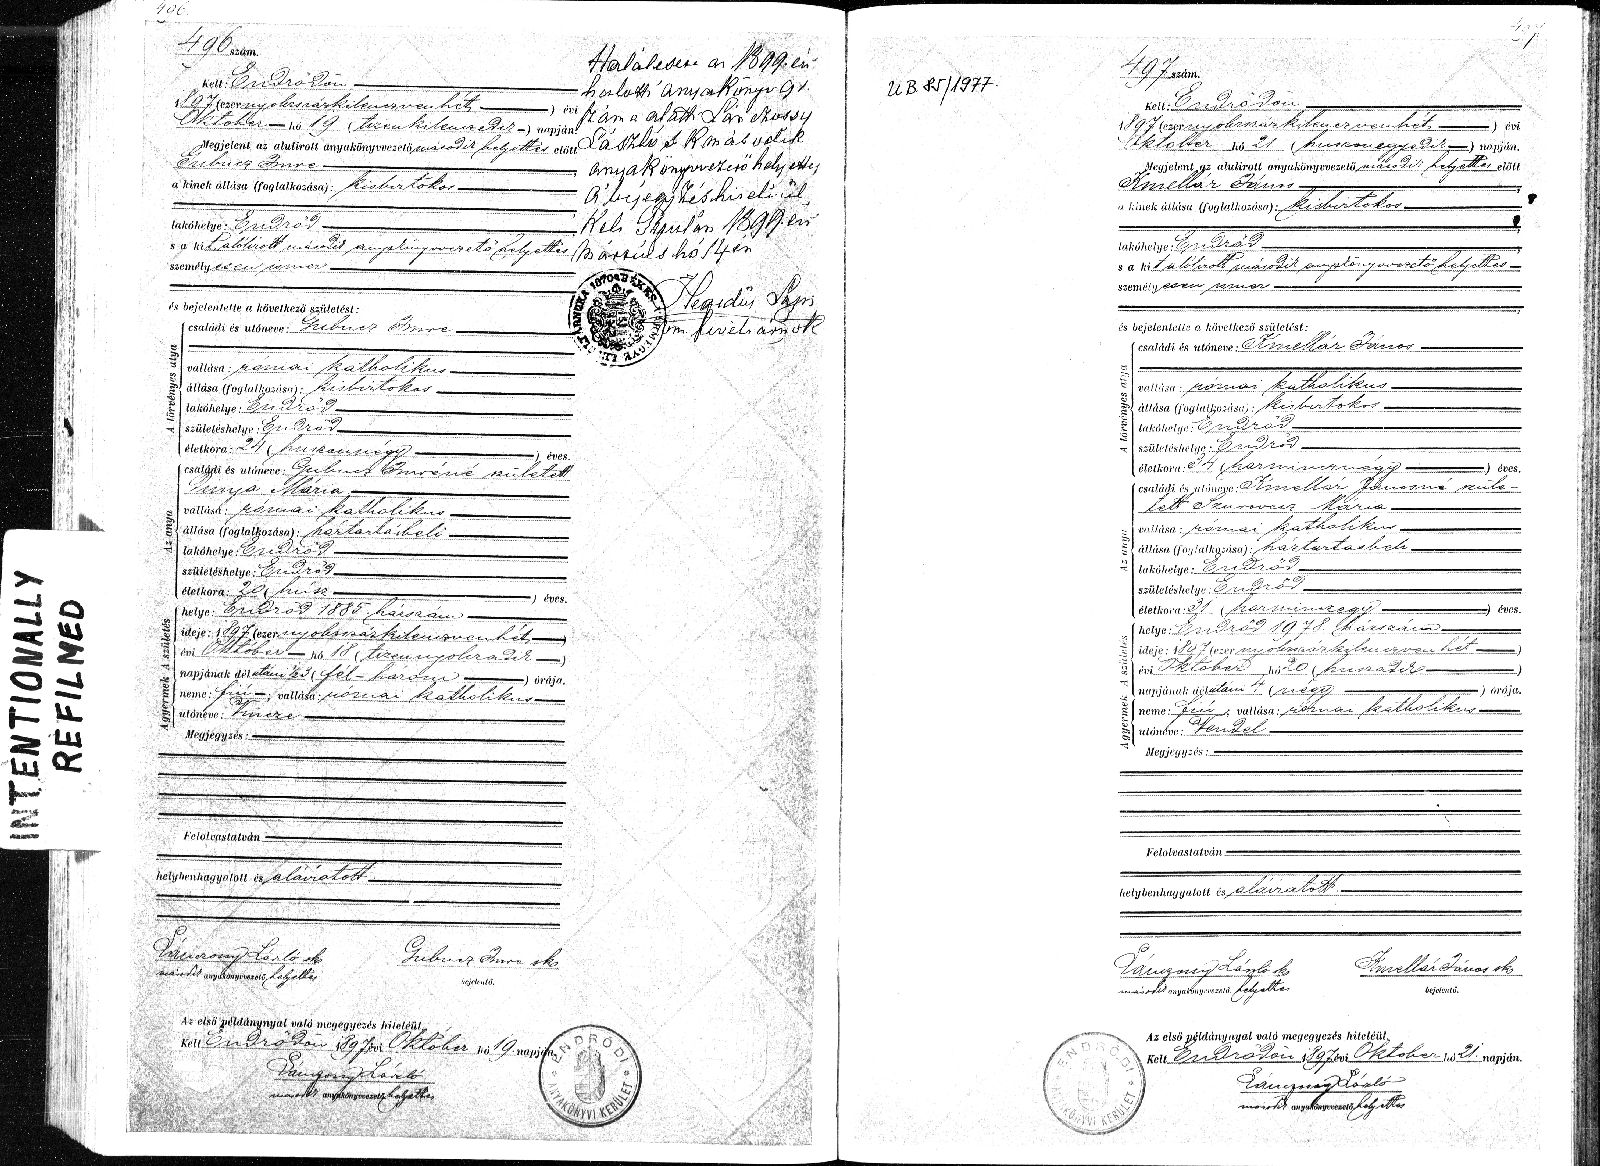 496
496 szám.
Kelt: Endrődön
1897 (ezernyolczszázkilenczvenhét) évi
Október hó 19 (tizenkilenczedik) napján.
Megjelent az alulirott anyakönyvezető második helyettes előtt
Gubucz Imre
a kinek állása (foglalkozása): kisbirtokos
lakóhelye: Endrőd
s a kit alulirott második anyakönyvvezető helyettes
személyesen ismer
és bejelentette a következő születést:
A törvényes atya
családi és utóneve: Gubucz Imre
vallása: római katholikus
állása (foglalkozása): kisbirtokos
lakóhelye: Endrőd
születéshelye: Endrőd
életkora: 24 (huszonnégy) éves.
Az anya
családi és utóneve: Gubucz Imréné született
Mária
vallása: római katholikus
állása (foglalkozása): háztartásbeli
lakóhelye: Endrőd
születéshelye: Endrőd
életkora: 20 (húsz) éves.
A gyermek A születés
helye: Endrőd 1885 házszám
ideje: 1897 (ezernyolczszázkilenczvenhét)
évi Október hó 18 (tizennyolczadik)
napjának délutáni ½3 (fél-három) órája.
neme: fiú; vallása: római katholikus
utóneve: Vincze
Megjegyzés:
Felolvastatván
helybenhagyatott és aláíratott
László sk
második anyakönyvvezető helyettes
Gubucz Imre sk
bejelentő.
Az első példánynyal való megegyezés hiteléül,
Kelt Endrődön 1897 évi Október hó 19 napján.
László
második anyakönyvvezető helyettes
ENDRŐDI ANYAKÖNYVI KERÜLET
Halálesete az 1899. évi
halotti anyakönyv 91.
szám alatt
László s. k. második
anyakönyvvezető helyettes
A bejegyzés hiteléül
Kelt Gyulán 1899 évi
március hó 14 én
Hegedüs
INTENTIONALLY
REFILMED
497
UB 85/1977.
497 szám.
Kelt: Endrődön
1897 (ezernyolczszázkilenczvenhét) évi
Október hó 21 (huszonegyedik) napján.
Megjelent az alulirott anyakönyvvezető második helyettes előtt
Kmellár János
a kinek állása (foglalkozása): kisbirtokos
lakóhelye: Endrőd
s a kit alulirott második anyakönyvvezető helyettes
személyesen ismer
és bejelentette a következő születést:
A törvényes atya
családi és utóneve: Kmellár János
vallása: római katholikus
állása (foglalkozása): kisbirtokos
lakóhelye: Endrőd
születéshelye: Endrőd
életkora: 34 (harmincznégy) éves.
Az anya
családi és utóneve: Kmellár Jánosné szüle-
tett Mária
vallása: római katholikus
állása (foglalkozása): háztartásbeli
lakóhelye: Endrőd
születéshelye: Endrőd
életkora: 31 (harminczegy) éves.
A gyermek A születés
helye: Endrőd 1978 házszám
ideje: 1897 (ezernyolczszázkilenczvenhét)
évi Október hó 20 (huszadik)
napjának délutáni 4 (négy) órája.
neme: fiú; vallása: római katholikus
utóneve: Vendel
Megjegyzés:
Felolvastatván
helybenhagyatott és aláíratott
László sk
második anyakönyvvezető helyettes
Kmellár János sk
bejelentő.
Az első példánynyal való megegyezés hiteléül,
Kelt Endrődön 1897 évi Október hó 21. napján.
László
második anyakönyvvezető helyettes
ENDRŐDI ANYAKÖNYVI KERÜLET